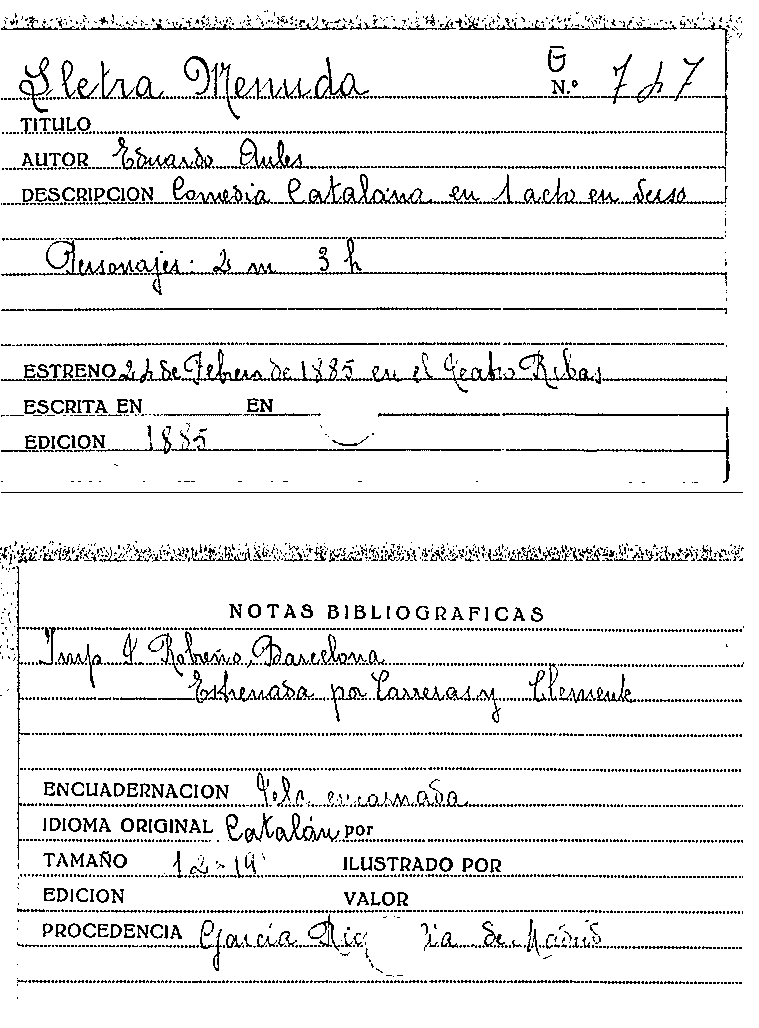 Lletra Menuda
G
N.º 747
TITULO
AUTOR Eduardo Aules
DESCRIPCION Comedia Catalana en 1 acto en verso
Personajes: 2 m 3 h
ESTRENO 24 de Febrero de 1885 en el Teatro Ribas
ESCRITA EN EN
EDICION 1885
NOTAS BIBLIOGRAFICAS
Imp Robreño, Barcelona
Estrenada por Carreras y Clemente
ENCUADERNACION Tela encarnada
IDIOMA ORIGINAL Catalán por
TAMAÑO 12-19 ILUSTRADO POR
EDICION VALOR
PROCEDENCIA García de Madrid